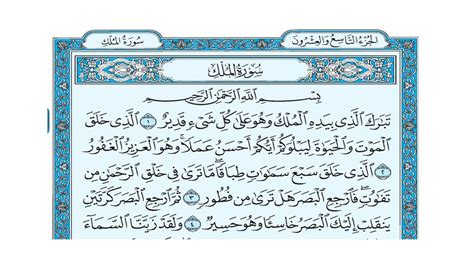 سُورَةُ المُلْكِ
الجُزْءُ التَّاسِعُ وَالعِشْرُونَ
سُورَةُ المُلْكِ
بِسْمِ اللَّهِ الرَّحْمَٰنِ الرَّحِيمِ
تَبَٰرَكَ الَّذِي بِيَدِهِ الْمُلْكُ وَهُوَ عَلَىٰ كُلِّ شَيْءٍ قَدِيرٌ ١ الَّذِي خَلَقَ
الْمَوْتَ وَالْحَيَوٰةَ لِيَبْلُوَكُمْ أَيُّكُمْ أَحْسَنُ عَمَلًا وَهُوَ الْعَزِيزُ الْغَفُورُ
٢ الَّذِي خَلَقَ سَبْعَ سَمَٰوَٰتٍ طِبَاقًا مَّا تَرَىٰ فِي خَلْقِ الرَّحْمَٰنِ مِن
تَفَٰوُتٍ فَارْجِعِ الْبَصَرَ هَلْ تَرَىٰ مِن فُطُورٍ ٣ ثُمَّ ارْجِعِ الْبَصَرَ كَرَّتَيْنِ
يَنقَلِبْ إِلَيْكَ الْبَصَرُ خَاسِئًا وَهُوَ حَسِيرٌ ٤ وَلَقَدْ زَيَّنَّا السَّمَآءَ